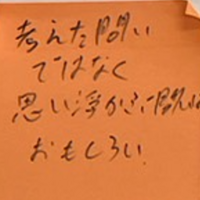 考えた問い
ではなく
思い浮かぶ問いは
おもしろい